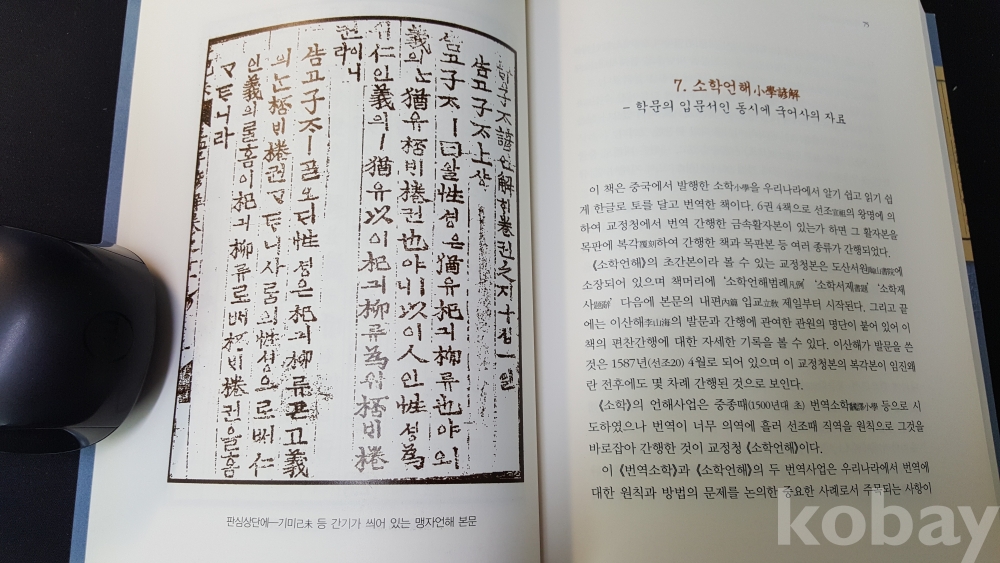 諺언解ᄒᆡ卷권之지十십一일
告고子ᄌᆞ上샹
告고子ᄌᆞㅣ曰왈性셩은猶유杞긔柳류也야ㅣ오
義의ᄂᆞᆫ猶유桮ᄇᆡ棬권也야ㅣ니以이人인性셩爲
仁인義의ㅣ猶유以이杞긔柳류爲위桮ᄇᆡ棬
권이니라
告고子ᄌᆞㅣᄀᆞᆯ오ᄃᆡ性셩은杞긔柳류ᄀᆞᆮ고義
의ᄂᆞᆫ桮ᄇᆡ棬권ᄀᆞᆮᄐᆞ니사ᄅᆞᆷ의性셩으로ᄡᅥ仁
인義의ᄅᆞᆯ홈이杞긔柳류로ᄡᅥ桮ᄇᆡ棬권을홈
ᄀᆞᆮᄐᆞ니라
판심상단에─기미己未 등 간기가 씌어 있는 맹자언해 본문
75
7. 소학언해小學諺解
- 학문의 입문서인 동시에 국어사의 자료
이 책은 중국에서 발행한 소학小學을 우리나라에서 알기 쉽고 읽기 쉽
게 한글로 토를 달고 번역한 책이다. 6권 4책으로 선조宣祖의 왕명에 의
하여 교정청에서 번역 간행한 금속활자본이 있는가 하면 그 활자본을
목판에 복각覆刻하여 간행한 책과 목판본 등 여러 종류가 간행되었다.
《소학언해》의 초간본이라 볼 수 있는 교정청본은 도산서원陶山書院에
소장되어 있으며 책머리에 '소학언해범례凡例' '소학서제書題' '소학제
사題辭' 다음에 본문의 내편內篇 입교立敎 제일부터 시작된다. 그리고 끝
에는 이산해李山海의 발문과 간행에 관여한 관원의 명단이 붙어 있어 이
책의 편찬간행에 대한 자세한 기록을 볼 수 있다. 이산해가 발문을 쓴
것은 1587년(선조20) 4월로 되어 있으며 이 교정청본의 복각본이 임진왜
란 전후에도 몇 차례 간행된 것으로 보인다.
《소학》의 언해사업은 중종때(1500년대 초) 번역소학飜譯小學 등으로 시
도하였으나 번역이 너무 의역에 흘러 선조때 직역을 원칙으로 그것을
바로잡아 간행한 것이 교정청 《소학언해》이다.
이 《번역소학》과 《소학언해》의 두 번역사업은 우리나라에서 번역에
대한 원칙과 방법의 문제를 논의한 중요한 사례로서 주목되는 사항이
kobay